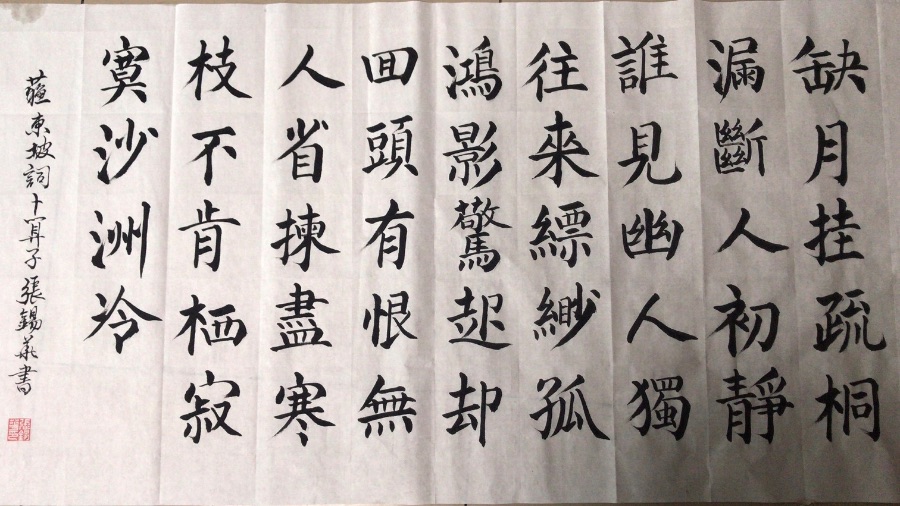 缺月挂疏桐
漏斷人初靜
誰見幽人獨
往來縹緲孤
鴻影驚起却
囬頭有恨無
人省揀盡寒
枝不肯栖寂
寞沙洲冷
蘇東坡詞卜算子張錫華書